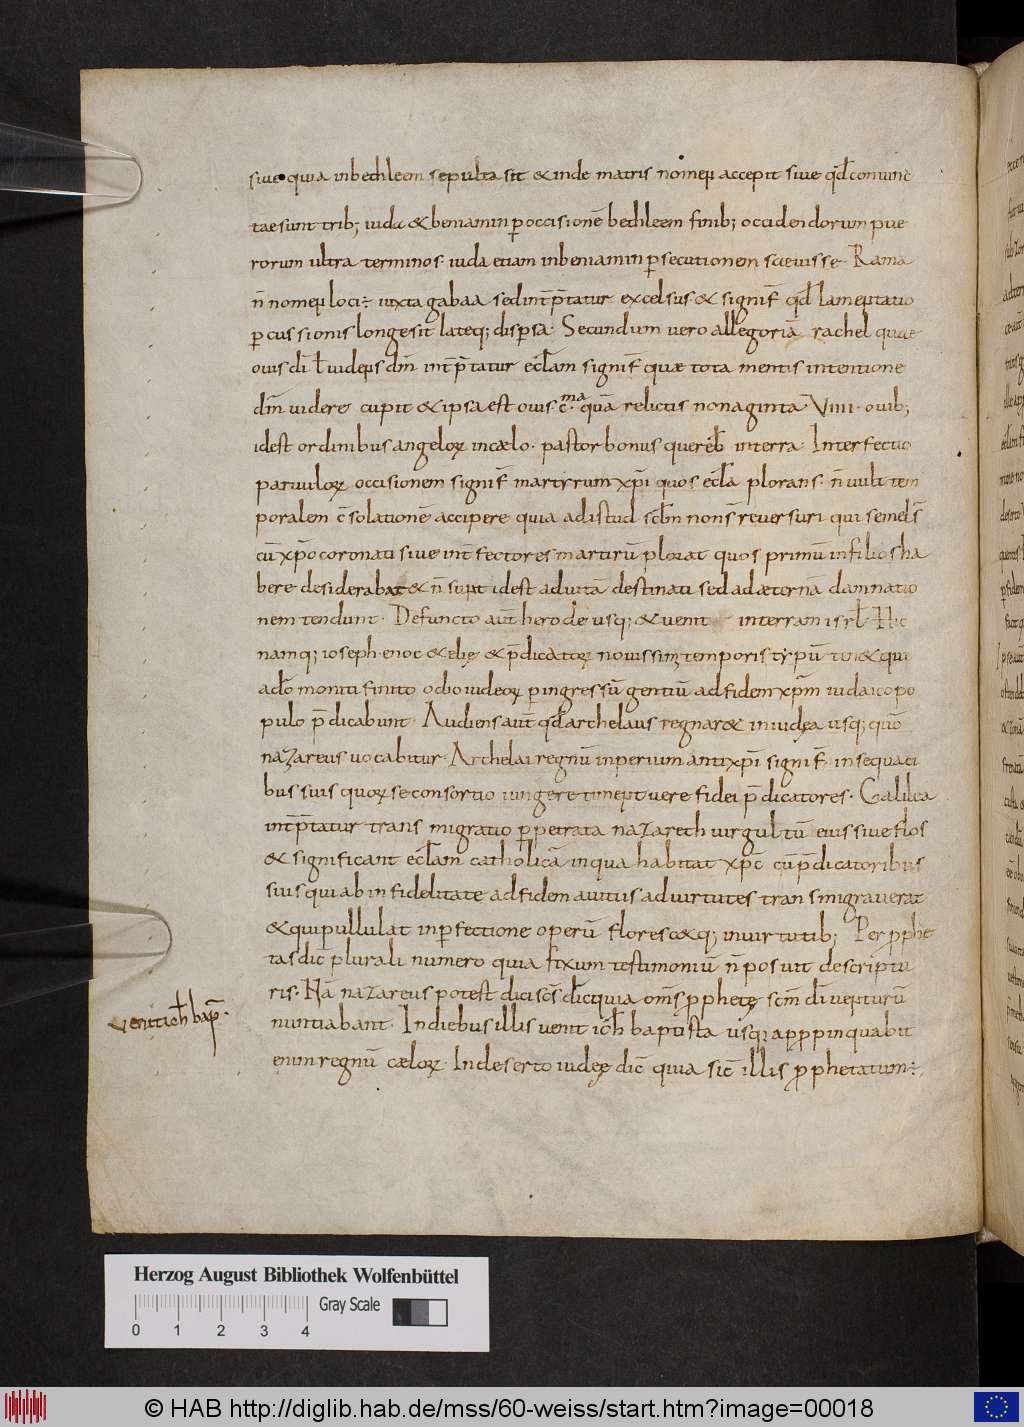 siue quia inbethleem sepulta sit & inde matris nomen accepit siue qđ coniunc
tae sunt trib; iuda & beniamin ꝑ occisionē bethleem finib; occidendorum pue
rorum ultra terminos iuda etiam inbeniamin ꝑsecutionem sceuisse. Rama
n̄ nomen loci÷ iuxta gabaa sed int̄p̄tatur excelsus & signif̄ qđ lamentatio
ꝑcussionis longe sit lateq; disꝑsa. Secundum uero allegoriā rachel quae
ouis dī ł uidens dm̄ int̄p̄tatur eccłam signif̄ quæ tota mentis intentione
dm̄ uidere cupit & ipsa est ouis .c.ma quā relictis nonaginta VIIII. ouib;
idest ordinibus angeloꝝ incælo. pastor bonus querebat interra Interfectio
paruuloꝝ occisionem signif̄ martyrum xp̄i quos eccła plorans. n̄ uult tem
poralem c̄solationē accipere quia ad istud scłm non s̄ reuersuri qui semel s̄
cū xp̄o coronati siue int̄fectores martirū plorat quos primū infilios ha
bere desiderabat & n̄ sunt idest aduitā destinati sed adæternā damnatio
nem tendunt. Defuncto aut̄ herode usq; & uenit interram isrł Hic
namq; ioseph enoc & elię & p̄dicatoꝝ nouissimi temporis typū ten& qui
adło monti finito odio iudeoꝝ ꝑingressū gentiū adfidem xp̄m iudaico po
pulo p̄dicabunt. Audiens aut̄ qđ archelaus regnar& iniudęa usq; quō
nazareus uocabitur. Archelai regnū inperium antixp̄i signif̄ insequaci
bus suis quoꝝ se consortio iungere timent uere fidei p̄dicatores. Galilea
int̄p̄tatur transmigratio ꝑpetrata nazareth uirgultū eius siue flos
& significant eccłam catholicā inqua habitat xp̄c cū p̄dicatoribus
suis qui ab infidelitate adfidem auitiis aduirtutes transmigrauerat
& qui pullulat inꝑfectione operū floresc&q; inuirtutib; Per ꝓphe
tas dic̄ plurali numero quia fixum testimoniū n̄ posuit descriptu
ris. Nā nazareus potest dici sc̄s dic̄ quia om̄s ꝓphetę scm̄ dī uenturū
nuntiabant. Indiebus illis uenit ioh̄ baptista usq; apꝓpinquabit
enim regnū cæloꝝ. Indeserto iudeę dic̄ quia sic̄ illis ꝓphetatum÷
Uenit ioh̄ bap̄.
Herzog August Bibliothek Wolfenbüttel
Gray Scale
0 1 2 3 4
© HAB http://diglib.hab.de/mss/60-weiss/start.htm?image=00018